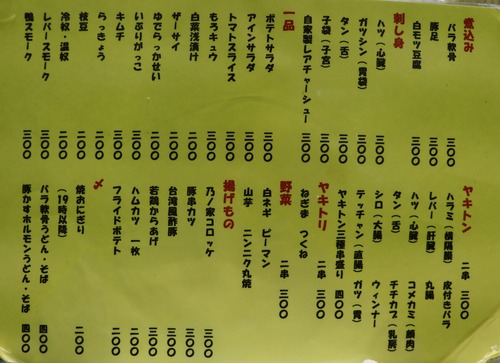 煮込み
バラ軟骨 三〇〇
豚足 三〇〇
白モツ豆腐 三〇〇
刺し身
ハツ(心臓) 三〇〇
ガツシン(胃袋) 三〇〇
タン(舌) 三〇〇
子袋(子宮) 三〇〇
自家製レアチャーシュー 三〇〇
一品
ポテトサラダ 二〇〇
アインサラダ 二〇〇
トマトスライス 三〇〇
もろキュウ 二〇〇
白菜浅漬け 二〇〇
ザーサイ 二〇〇
ゆでらっかせい 二〇〇
いぶりがっこ 三〇〇
キムチ 三〇〇
らっきょう 二〇〇
枝豆 二〇〇
冷奴・温奴 二〇〇
レバースモーク 三〇〇
鴨スモーク 三〇〇
ヤキトン 二串 三〇〇
ハラミ(横隔膜) 皮付きバラ
レバー(肝臓) 丸腸
ハツ(心臓) コメカミ(顔肉)
タン(舌) チチカブ(乳房)
シロ(大腸) ウィンナー
テッチャン(直腸) ガツ(胃)
ヤキトン三種串盛り 四〇〇
ヤキトリ 二串 三〇〇
ねぎま つくね
野菜 二串 三〇〇
白ネギ ピーマン
山芋 ニンニク丸焼
揚げもの
乃ノ家コロッケ 三〇〇
豚串カツ 三〇〇
台湾風酢豚 三〇〇
若鶏からあげ 三〇〇
ハムカツ 一枚 二〇〇
フライドポテト 二〇〇
〆
焼おにぎり 二〇〇
(19時以降)
バラ軟骨うどん・そば 四〇〇
豚かすホルモンうどん・そば 四〇〇